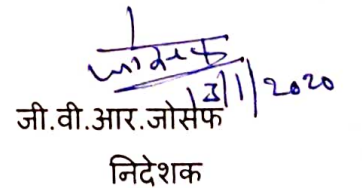 जोसेफ
13/1/2020
जी.वी.आर.जोसेफ
निदेशक